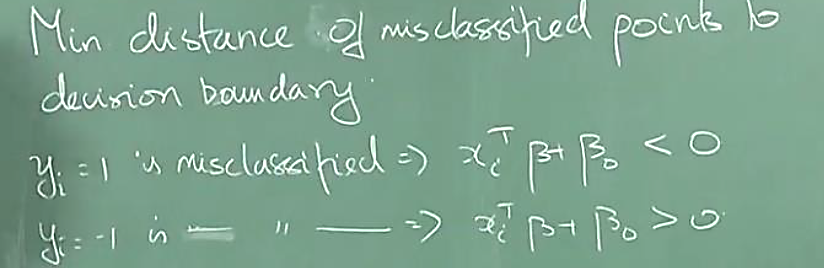 Min distance of misclassified points to
decision boundary.
yᵢ = 1 is misclassified => xᵢᵀ β + β₀ < 0
yᵢ = -1 is — " — => xᵢᵀ β + β₀ > 0.